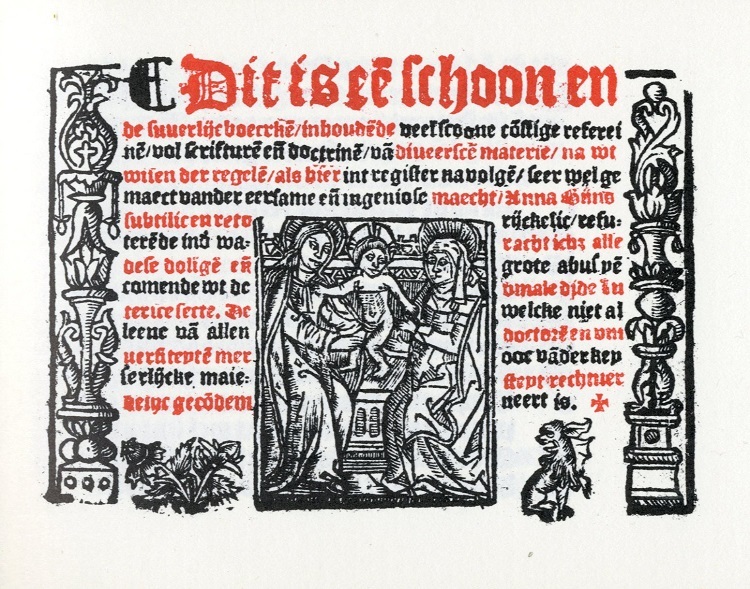 Dit is eē schoon en
de suuerlijc boecxkē/inhoudēde veel scoone cōstige referei
nē/vol scrifturē eñ doctrinē/vā diueerscē materiē/ na wt
wisen der regelē/als hier int register na volgē/ seer wel ge
maect vander eersame eñ ingeniose maecht/Anna Bijns
subtilic en reto rijckelic/refu:
terēde ind wa: racht ichz alle
dese doligē eñ grote abusyē
comende wt de vmaledide Lu
terice secte. De welcke niet al
leene vā allen doctorē en vni
uersiteytē mer ooc vāder key
serlijcke maie: steyt rechtuer
gecōdem neert is.